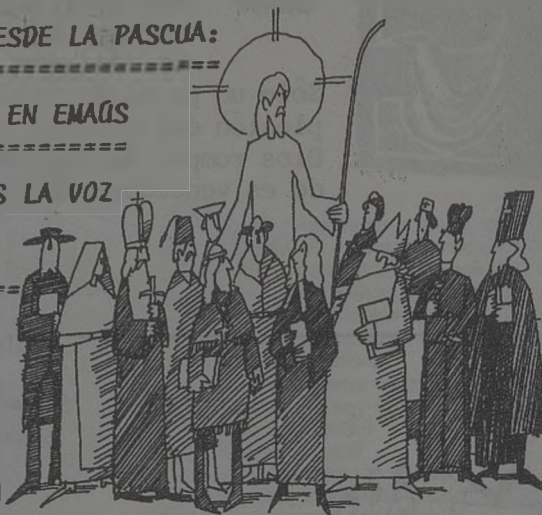 ESDE LA PASCUA:
====================
EN EMAÚS
=========
S LA VOZ